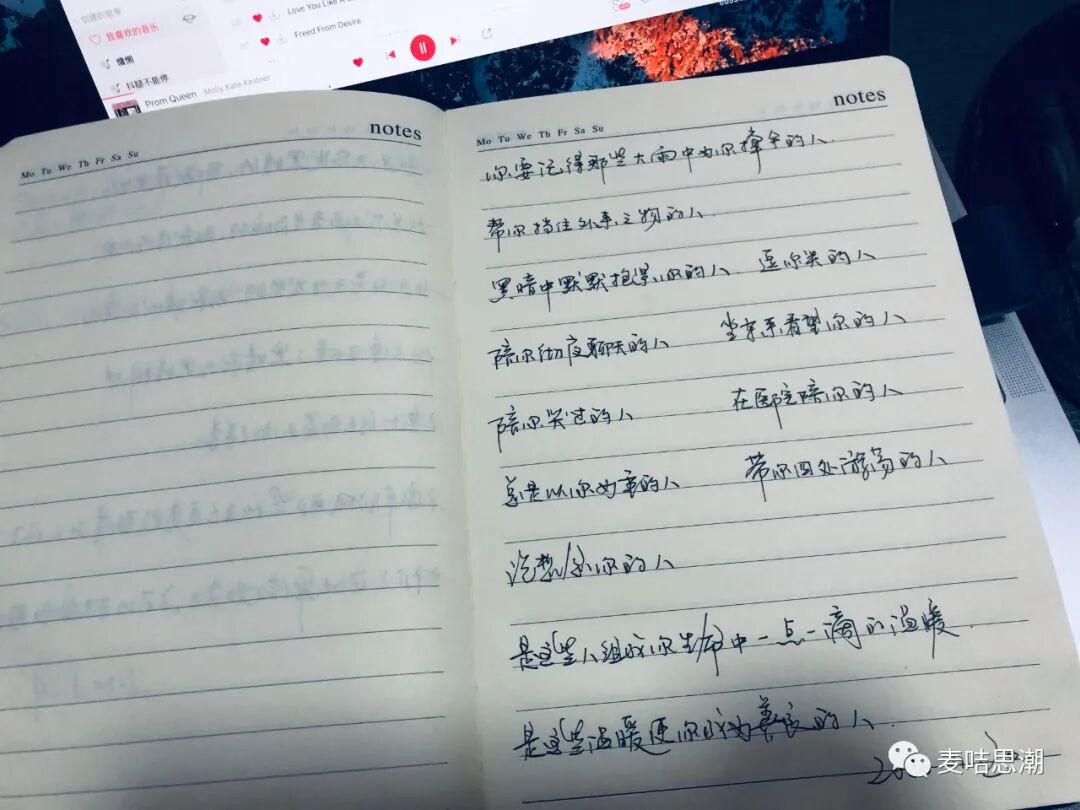 创建的歌单
我喜欢的音乐
慵懒
抖腿不能停
Love You Like A
Freed From Desire
Prom Queen Molly Kate Kestner
notes
Mo Tu We Th Fr Sa Su
notes
Mo Tu We Th Fr Sa Su
你要记得那些大雨中为你撑伞的人.
帮你挡住外来之物的人.
黑暗中默默抱紧你的人、逗你笑的人
陪你彻夜聊天的人 坐车来看望你的人
陪你哭过的人 在医院陪你的人
总是以你为重的人 带你四处游荡的人
说想念你的人
是这些人组成你生命中一点一滴的温暖.
是这些温暖使你成为善良的人.
麦咭思潮